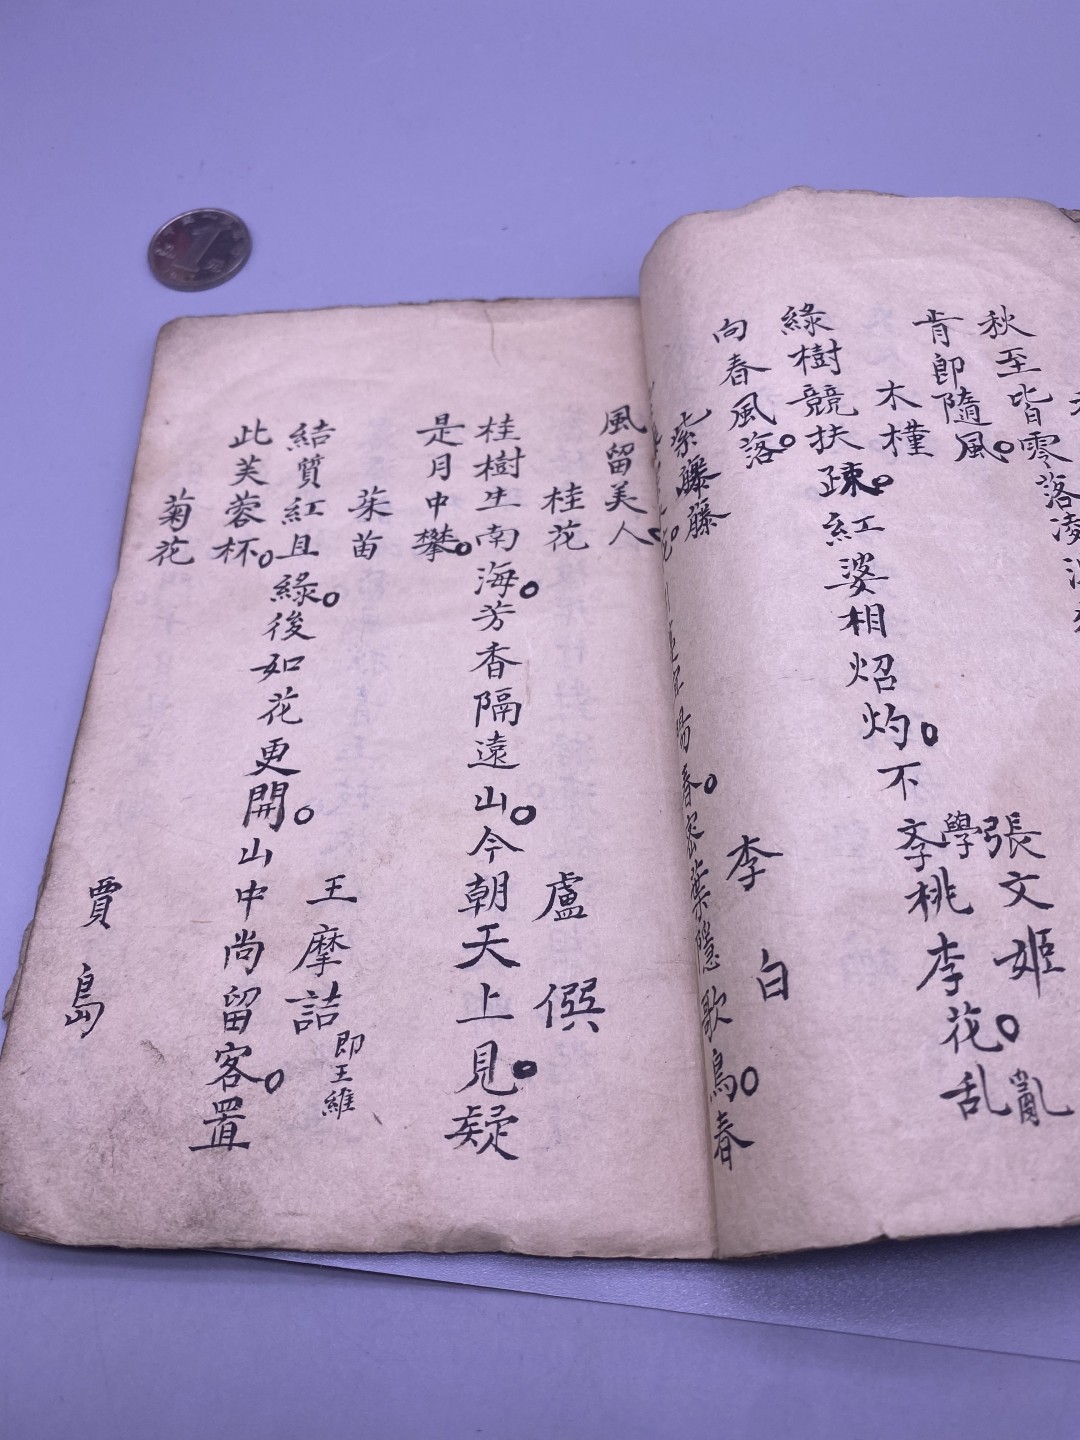 秋至皆零落凌
肯郎隨風。
張文姬
木槿
學李桃李花。乱亂
綠樹競扶疎。紅婆相炤灼。不
向春風落。
李白
紫藤藤
陽春。密葉隱歌鳥。春
風留美人。
桂花
盧僎
桂樹生南海。芳香隔遠山。今朝天上見。疑
是月中攀。
茱苗
王摩詰即王維
結質紅且綠。後如花更開。山中尚留客。置
此芙蓉杯。
菊花
賈島
1